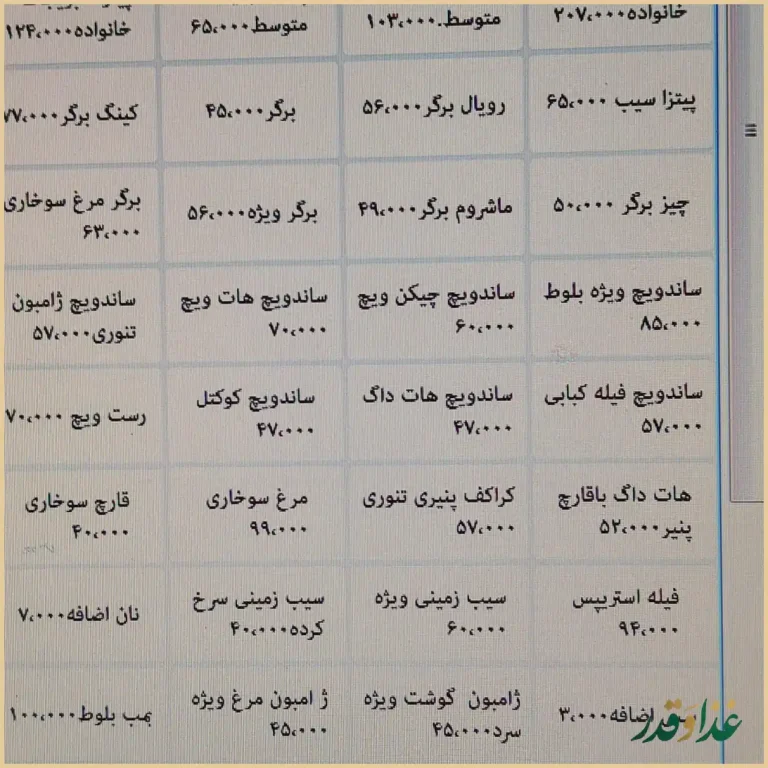 خانواده ۲۰۷،۰۰۰
متوسط.۱۰۳،۰۰۰
متوسط ۶۵،۰۰۰
خانواده ۱۲۴،۰۰۰
پیتزا سیب ۶۵،۰۰۰
رویال برگر ۵۶،۰۰۰
برگر ۴۵،۰۰۰
کینگ برگر ۷۷،۰۰۰
چیز برگر ۵۰،۰۰۰
ماشروم برگر ۴۹،۰۰۰
برگر ویژه ۵۶،۰۰۰
برگر مرغ سوخاری
۶۳،۰۰۰
ساندویچ ویژه بلوط
۸۵،۰۰۰
ساندویچ چیکن ویچ
۶۰،۰۰۰
ساندویچ هات ویچ
۷۰،۰۰۰
ساندویچ ژامبون
تنوری ۵۷،۰۰۰
ساندویچ فیله کبابی
۵۷،۰۰۰
ساندویچ هات داگ
۴۷،۰۰۰
ساندویچ کوکتل
۴۷،۰۰۰
رست ویچ ۷۰،۰۰۰
هات داگ باقارچ
پنیر ۵۲،۰۰۰
کراکف پنیری تنوری
۵۷،۰۰۰
مرغ سوخاری
۹۹،۰۰۰
قارچ سوخاری
۴۰،۰۰۰
فیله استریپس
۹۴،۰۰۰
سیب زمینی ویژه
۶۰،۰۰۰
سیب زمینی سرخ
کرده ۴۰،۰۰۰
نان اضافه ۷،۰۰۰
اضافه ۳،۰۰۰
ژامبون گوشت ویژه
سرد ۴۵،۰۰۰
ژ امبون مرغ ویژه
۴۵،۰۰۰
بمب بلوط ۱۰۰،۰۰۰
غذا و قدر